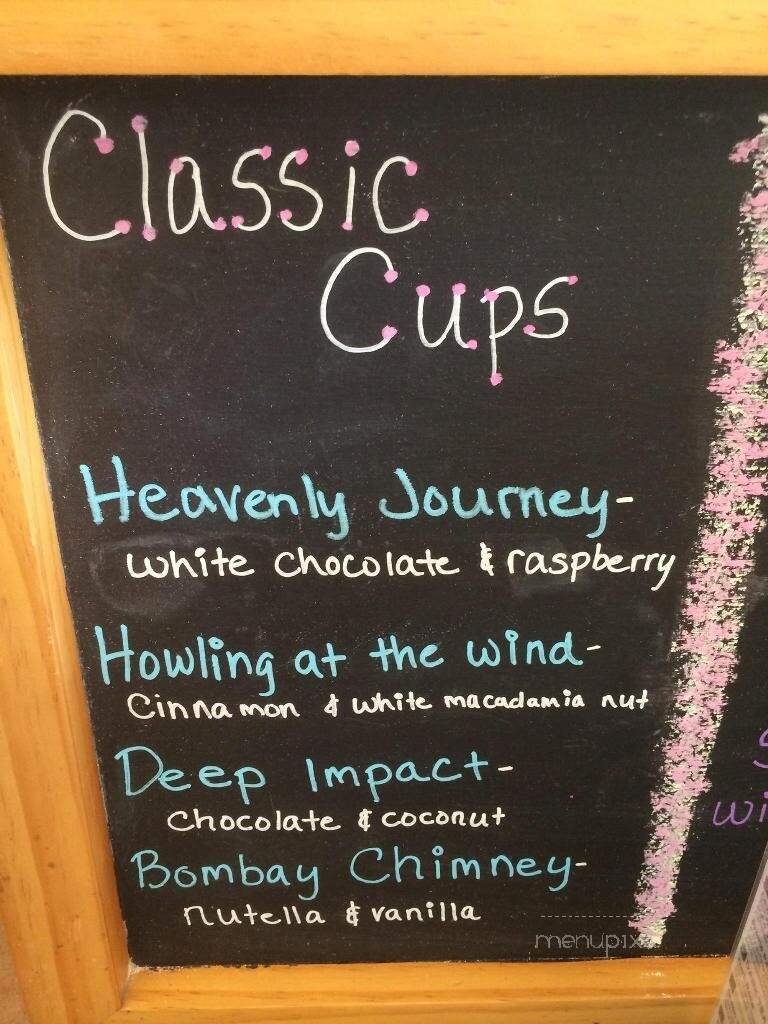 Classic
Cups
Heavenly Journey-
white chocolate & raspberry
Howling at the wind-
Cinnamon & white macadamia nut
Deep Impact-
chocolate & coconut
Bombay Chimney-
nutella & vanilla
wi
menupix